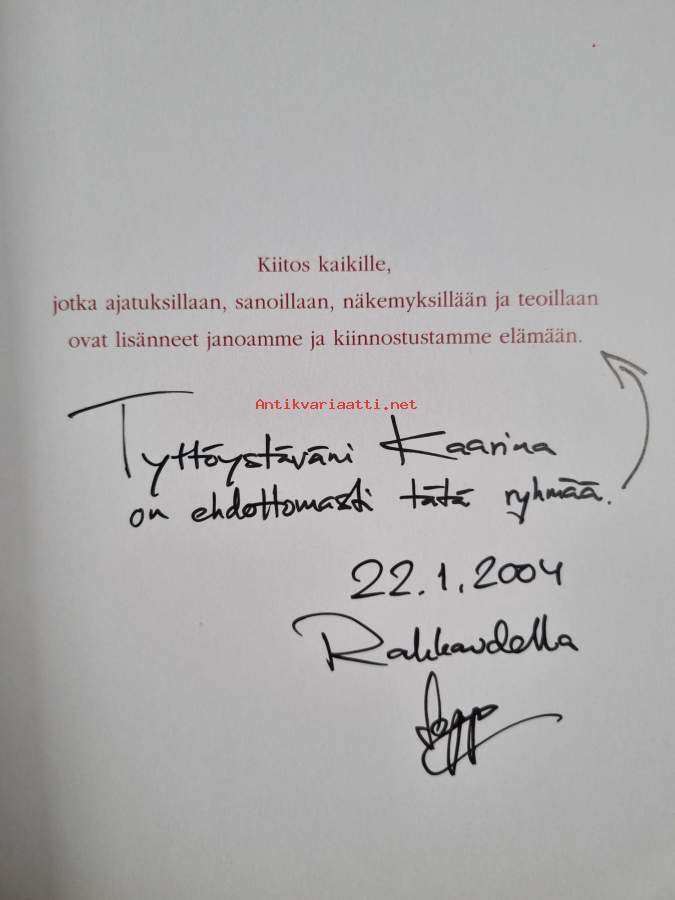 Kiitos kaikille,
jotka ajatuksillaan, sanoillaan, näkemyksillään ja teoillaan
ovat lisänneet janoamme ja kiinnostustamme elämään.
Antikvariaatti.net
Tyttöystäväni Kaarina
on ehdottomasti tätä ryhmää.
22.1.2004
Rakkaudella
Seppo